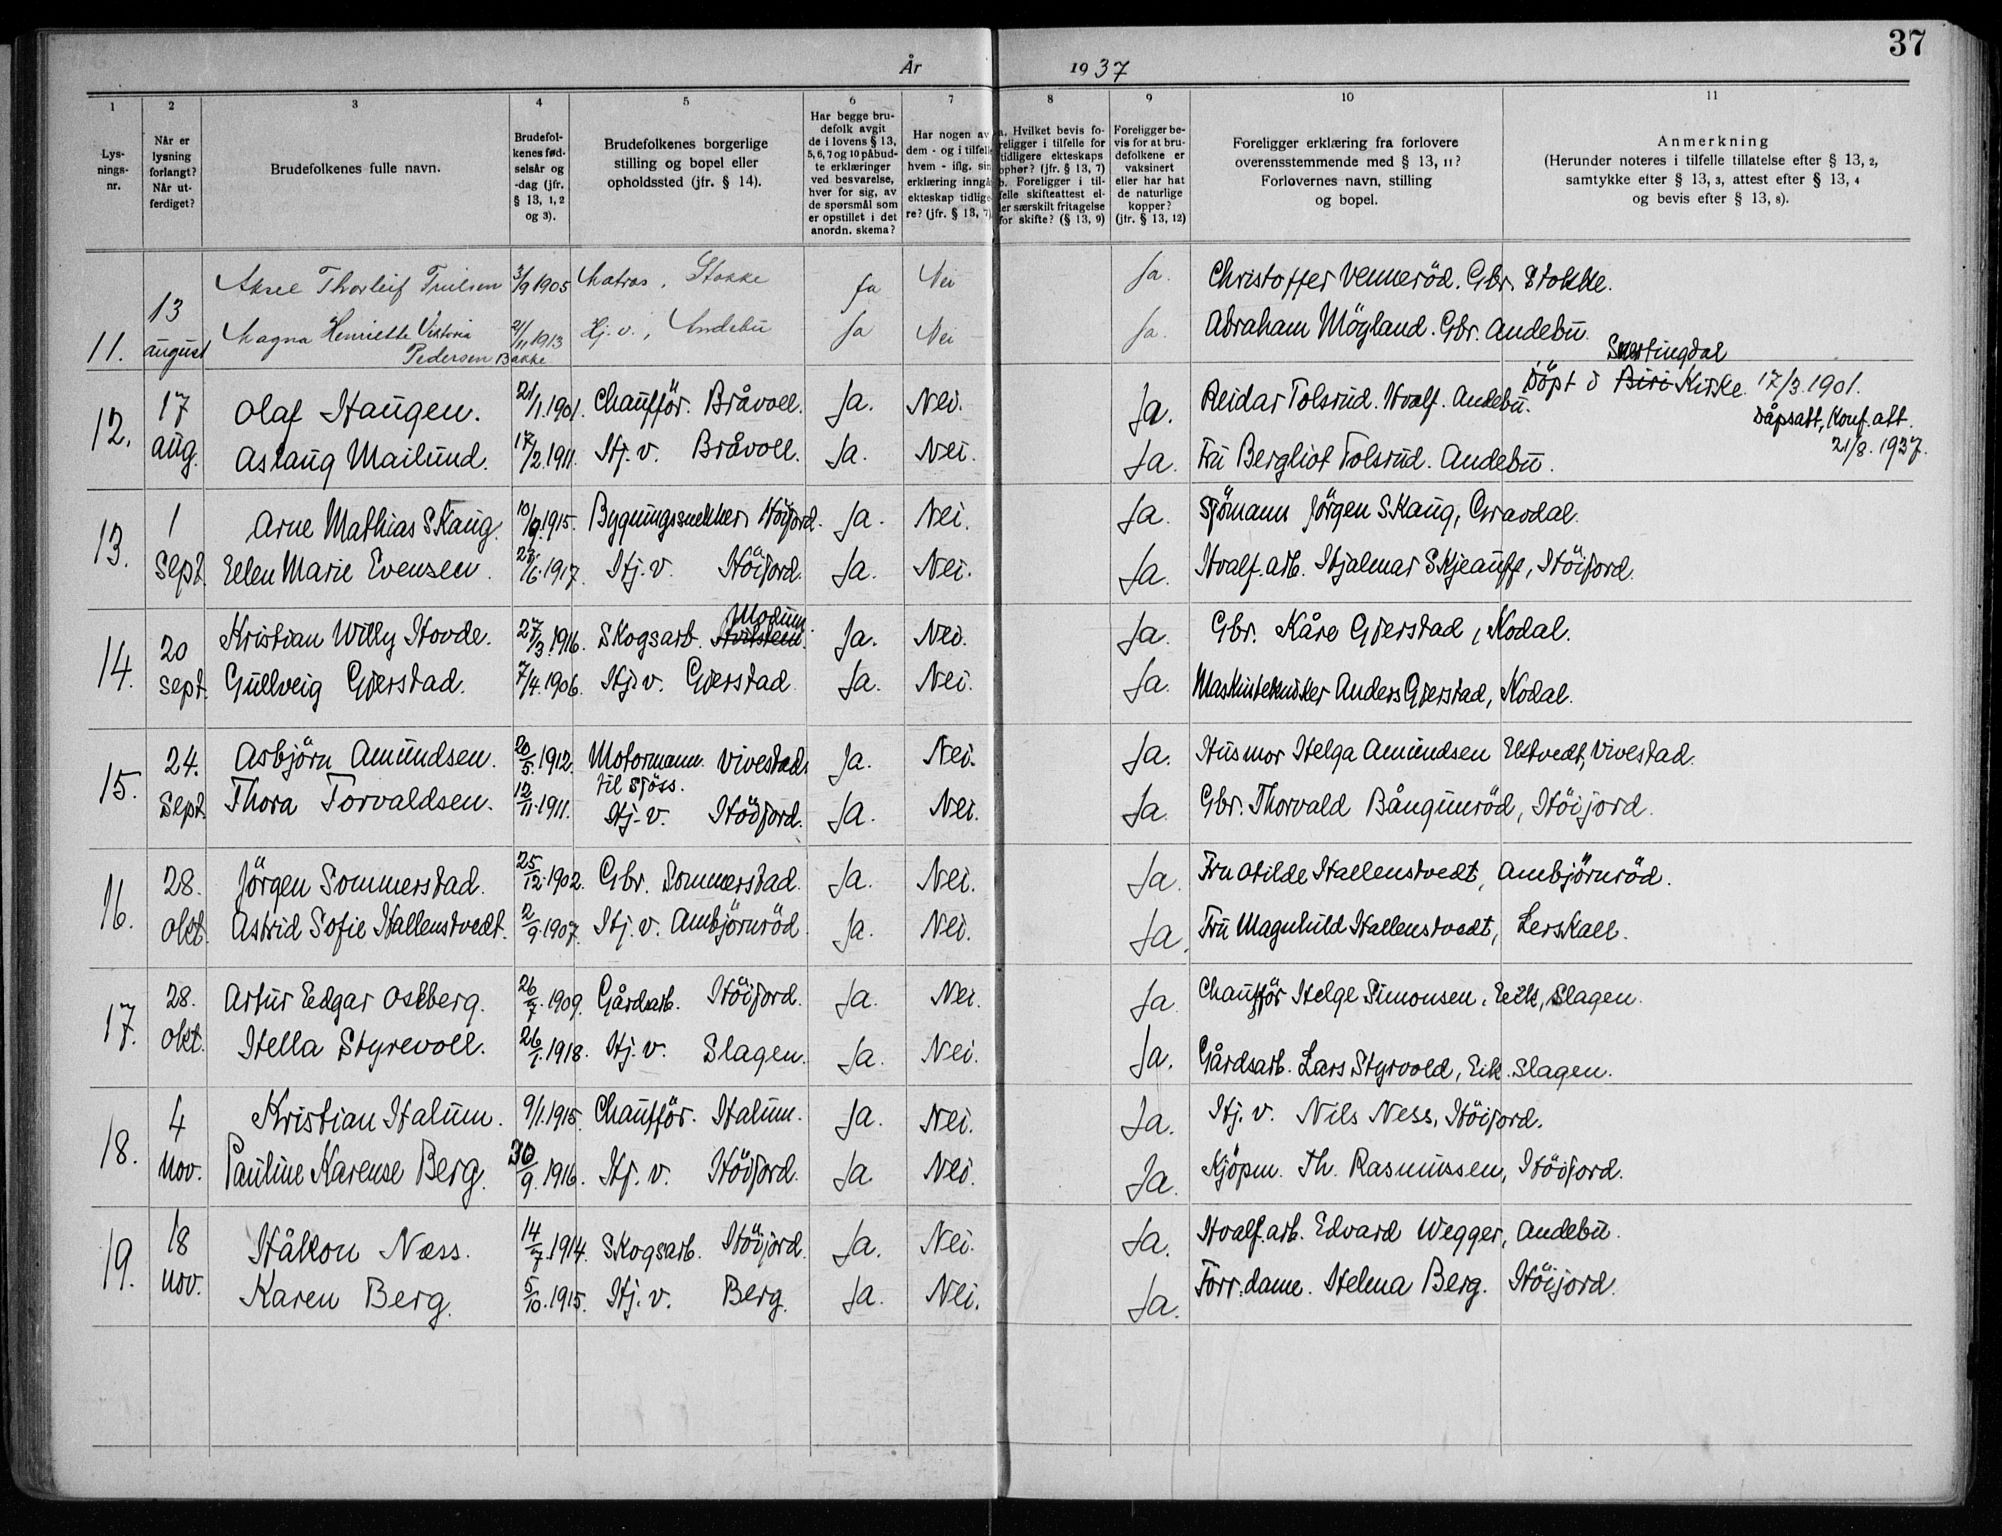 37
År 1937
1 2 3 4 5 6 7 8 9 10 11
Lysnings-nr.
Når er lysning forlangt? Når utferdiget?
Brudefolkenes fulle navn.
Brudefolkenes fødselsår og -dag (jfr. § 13, 1, 2 og 3).
Brudefolkenes borgerlige stilling og bopel eller opholdssted (jfr. § 14).
Har begge brudefolk avgit de i lovens § 13, 5, 6, 7 og 10 påbudte erklæringer ved besvarelse, hver for sig, av de spørsmål som er opstillet i det anordn. skema?
Har nogen av dem - og i tilfelle hvem - iflg. sin erklæring inngå ekteskap tidligere? (jfr. § 13, 7)
a. Hvilket bevis foreligger i tilfelle for tidligere ekteskaps ophør? (jfr. § 13, 7) b. Foreligger i tilfelle skifteattest eller særskilt fritagelse for skifte? (§ 13, 9)
Foreligger bevis for at brudefolkene er vaksinert eller har hat de naturlige kopper? (jfr. § 13, 12)
Foreligger erklæring fra forlovere overensstemmende med § 13, 11? Forlovernes navn, stilling og bopel.
Anmerkning (Herunder noteres i tilfelle tillatelse efter § 13, 2, samtykke efter § 13, 3, attest efter § 13, 4 og bevis efter § 13, 8).
13 Aksel Thorleif Trulsen 3/9 1905 Matros, Stokke Ja Nei Ja. Christoffer Venneröd. Gbr. Stokke.
11. august Magna Henriette Viktoria Pedersen Bakke 21/11 1913 Hj. v., Andebu Ja Nei Ja. Abraham Mögland. Gbr. Andebu.
Snertingdal
17 Olaf Haugen. 21/1.1901. Chaufför. Bråvoll. Ja. Nei. Ja. Reidar Tolsrud. Hvalf. Andebu. Döpt i Biri Kirke 17/3.1901.
Dåpsatt, Konf. att.
12. aug. Aslaug Mailund. 17/2.1911. Hj. v. Bråvoll. Ja. Nei. Ja. Fru Bergliot Tolsrud. Andebu. 21/8.1937.
1 Arne Mathias Skaug. 10/9.1915. Bygningssnekker, Höijord. Ja. Nei. Ja. Sjömann Jörgen Skaug, Gravdal.
13. Sept. Ellen Marie Evensen. /6.1917. Hj. v. Höijord. Ja. Nei. Ja. Hvalf. arb. Hjalmar Skjeauff, Höijord.
Modum.
20 Kristian Willy Hovde. 27/3.1916. Skogsarb. Hvitstein. Ja. Nei. Ja. Gbr. Kåre Gjerstad, Kodal.
14. Sept. Gullveig Gjerstad. 7/4.1906. Hj. v. Gjerstad Ja. Nei. Ja. Maskintekniker Anders Gjerstad, Kodal.
24. Asbjörn Amundsen. 20/5.1912. Motormann. Vivestad. Ja. Nei. Ja. Husmor Helga Amundsen Elstvedt, Vivestad.
til sjöss.
15. Sept. Thora Torvaldsen. 12/11.1911. Hj. v. Höijord. Ja. Nei. Ja. Gbr. Thorvald Bångunröd, Höijord.
28. Jörgen Sommerstad. 25/12.1902. Gbr. Sommerstad. Ja. Nei. Ja. Fru Otilde Hallenstvedt, Ambjörnröd.
16. Okt. Astrid Sofie Hallenstvedt. 2/9.1907. Hj. v. Ambjörnröd Ja. Nei. Ja. Fru Magnhild Hallenstvedt, Lerskall.
28. Artur Edgar Ostberg. 26/7.1909. Gårdsarb. Höijord. Ja. Nei. Ja Chaufför Helge Simonsen, Eik, Slagen.
17. Okt. Hella Styrevoll. 26/1.1918. Hj. v. Slagen. Ja. Nei. Ja. Gårdsarb. Lars Styrvold, Eik. Slagen.
4 Kristian Halum. 9/1.1915. Chaufför. Halum. Ja. Nei. Ja. Hj. v. Nils Ness, Höijord.
18. Nov. Pauline Karense Berg. 30/9.1916. Hj. v. Höijord. Ja Nei. Ja. Kjöpm. Th. Rasmussen, Höijord.
18 Håkon Næss. 14/7.1914. Skogsarb. Höijord. Ja. Nei. Ja. Hvalf. arb. Edvard Wegger, Andebu.
19. Nov. Karen Berg. 5/10.1915. Hj. v. Berg. Ja. Nei. Ja. Forr. dame. Helma Berg. Höijord.